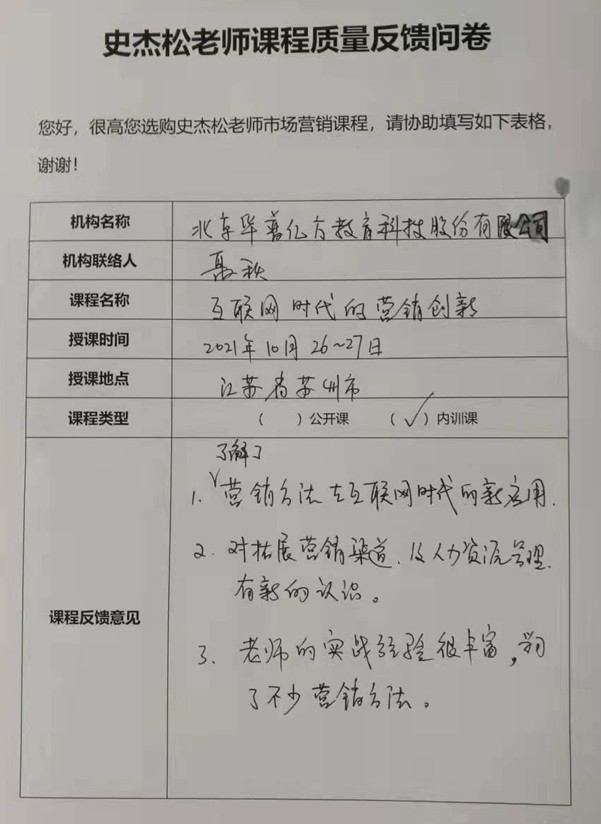 史杰松老师课程质量反馈问卷
您好，很高您选购史杰松老师市场营销课程，请协助填写如下表格，
谢谢！
机构名称 北京华普亿方教育科技股份有限公司
机构联络人 聂秋
课程名称 互联网时代的营销创新
授课时间 2021年10月26~27日
授课地点 江苏省苏州市
课程类型 （ ）公开课 （√）内训课
课程反馈意见
了解了
1. 营销方法在互联网时代的新应用.
2. 对拓展营销渠道、及人力资源管理.
有新的认识。
3. 老师的实战经验很丰富，学习
了不少营销方法。